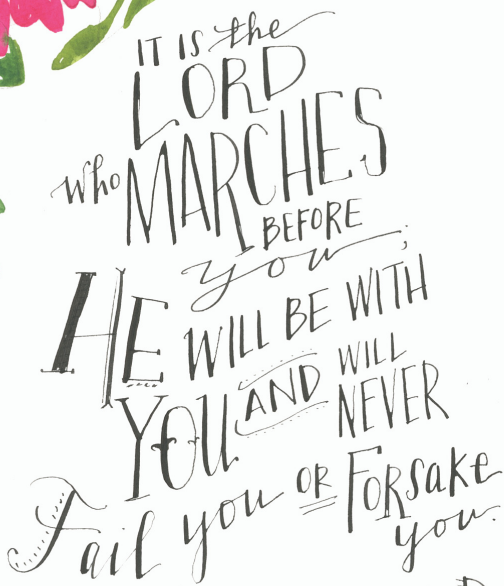 IT IS the
LORD
who MARCHES
BEFORE
you;
HE WILL BE WITH
YOU AND WILL NEVER
Fail you OR FORSake
you.